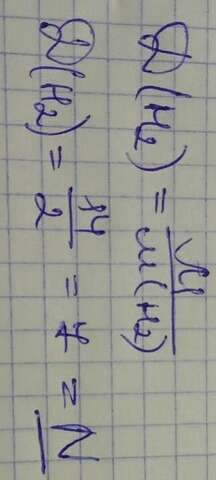 D(H₂) = M/M(H₂)
D(H₂) = 14/2 = 7 = N